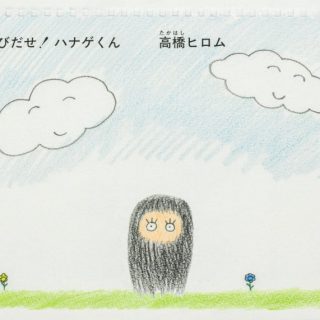 びだせ! ハナゲくん
高橋ヒロム
たかはし